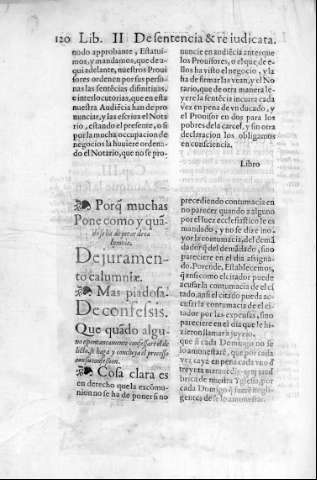 120 Lib. II De sentencia & re iudicata.
nodo approbante, Estatui-
mos, y mandamos, que de a-
qui adelante, nuestros Proui
sores ordenen por sus perso-
nas las sentẽcias difinitiuas,
e interlocutorias, que en esta
nuestra Audiẽcia han de pro
nunciar, y las escriua el Nota
rio, estando el presente, o si
por la mucha occupacion de
negocios la huuiere ordena-
do el Notario, que no se pro-
nuncie en audiẽcia anter que
los Prouisores, o el que de e-
llos ha visto el negocio, y la
ha de firmar las vean, y el No
tario, que de otra manera le-
yere la sentẽcia incurra cada
vez en pena de vn ducado, y
el Prouisor en dos para los
pobres de la carcel, y sin otra
declaracion los obligamos
en consciencia.
Libro
Porq̃ muchas
Pone como y quã-
do se ha de
De juramen-
to calumniæ.
Mas piadosa
De confessis.
Que quãdo algu-
no espontaneamente confessare el de
licto, se haga y concluya el processo
Cosa clara es
en derecho que la excõmu-
nion no se ha de poner si no
precediendo contumacia en
no parecer quando a alguno
por el juez ecclesiastico le es
mandado, y no se dize ma-
yor la contumacia, del dema
dador q̃ del demãdado, sino
pareciere en el dia assigna-
do. Porende, Establecemos,
q̃ assi como el citador puede
acusar la contumacia de el ci
tado, ansi el citado pueda ac
cusar la contumacia de el ci-
tador por las expensas, sino
pareciere en el dia que le hi-
zieron llamar a juyzio.
que si cada Domingo no se
lo amonestarẽ, que por cada
vez caya en pena cada vno
brica de nuestra Yglesia, por
cada Domĩgo q̃ fuere negli-
gences de se lo amonestar.